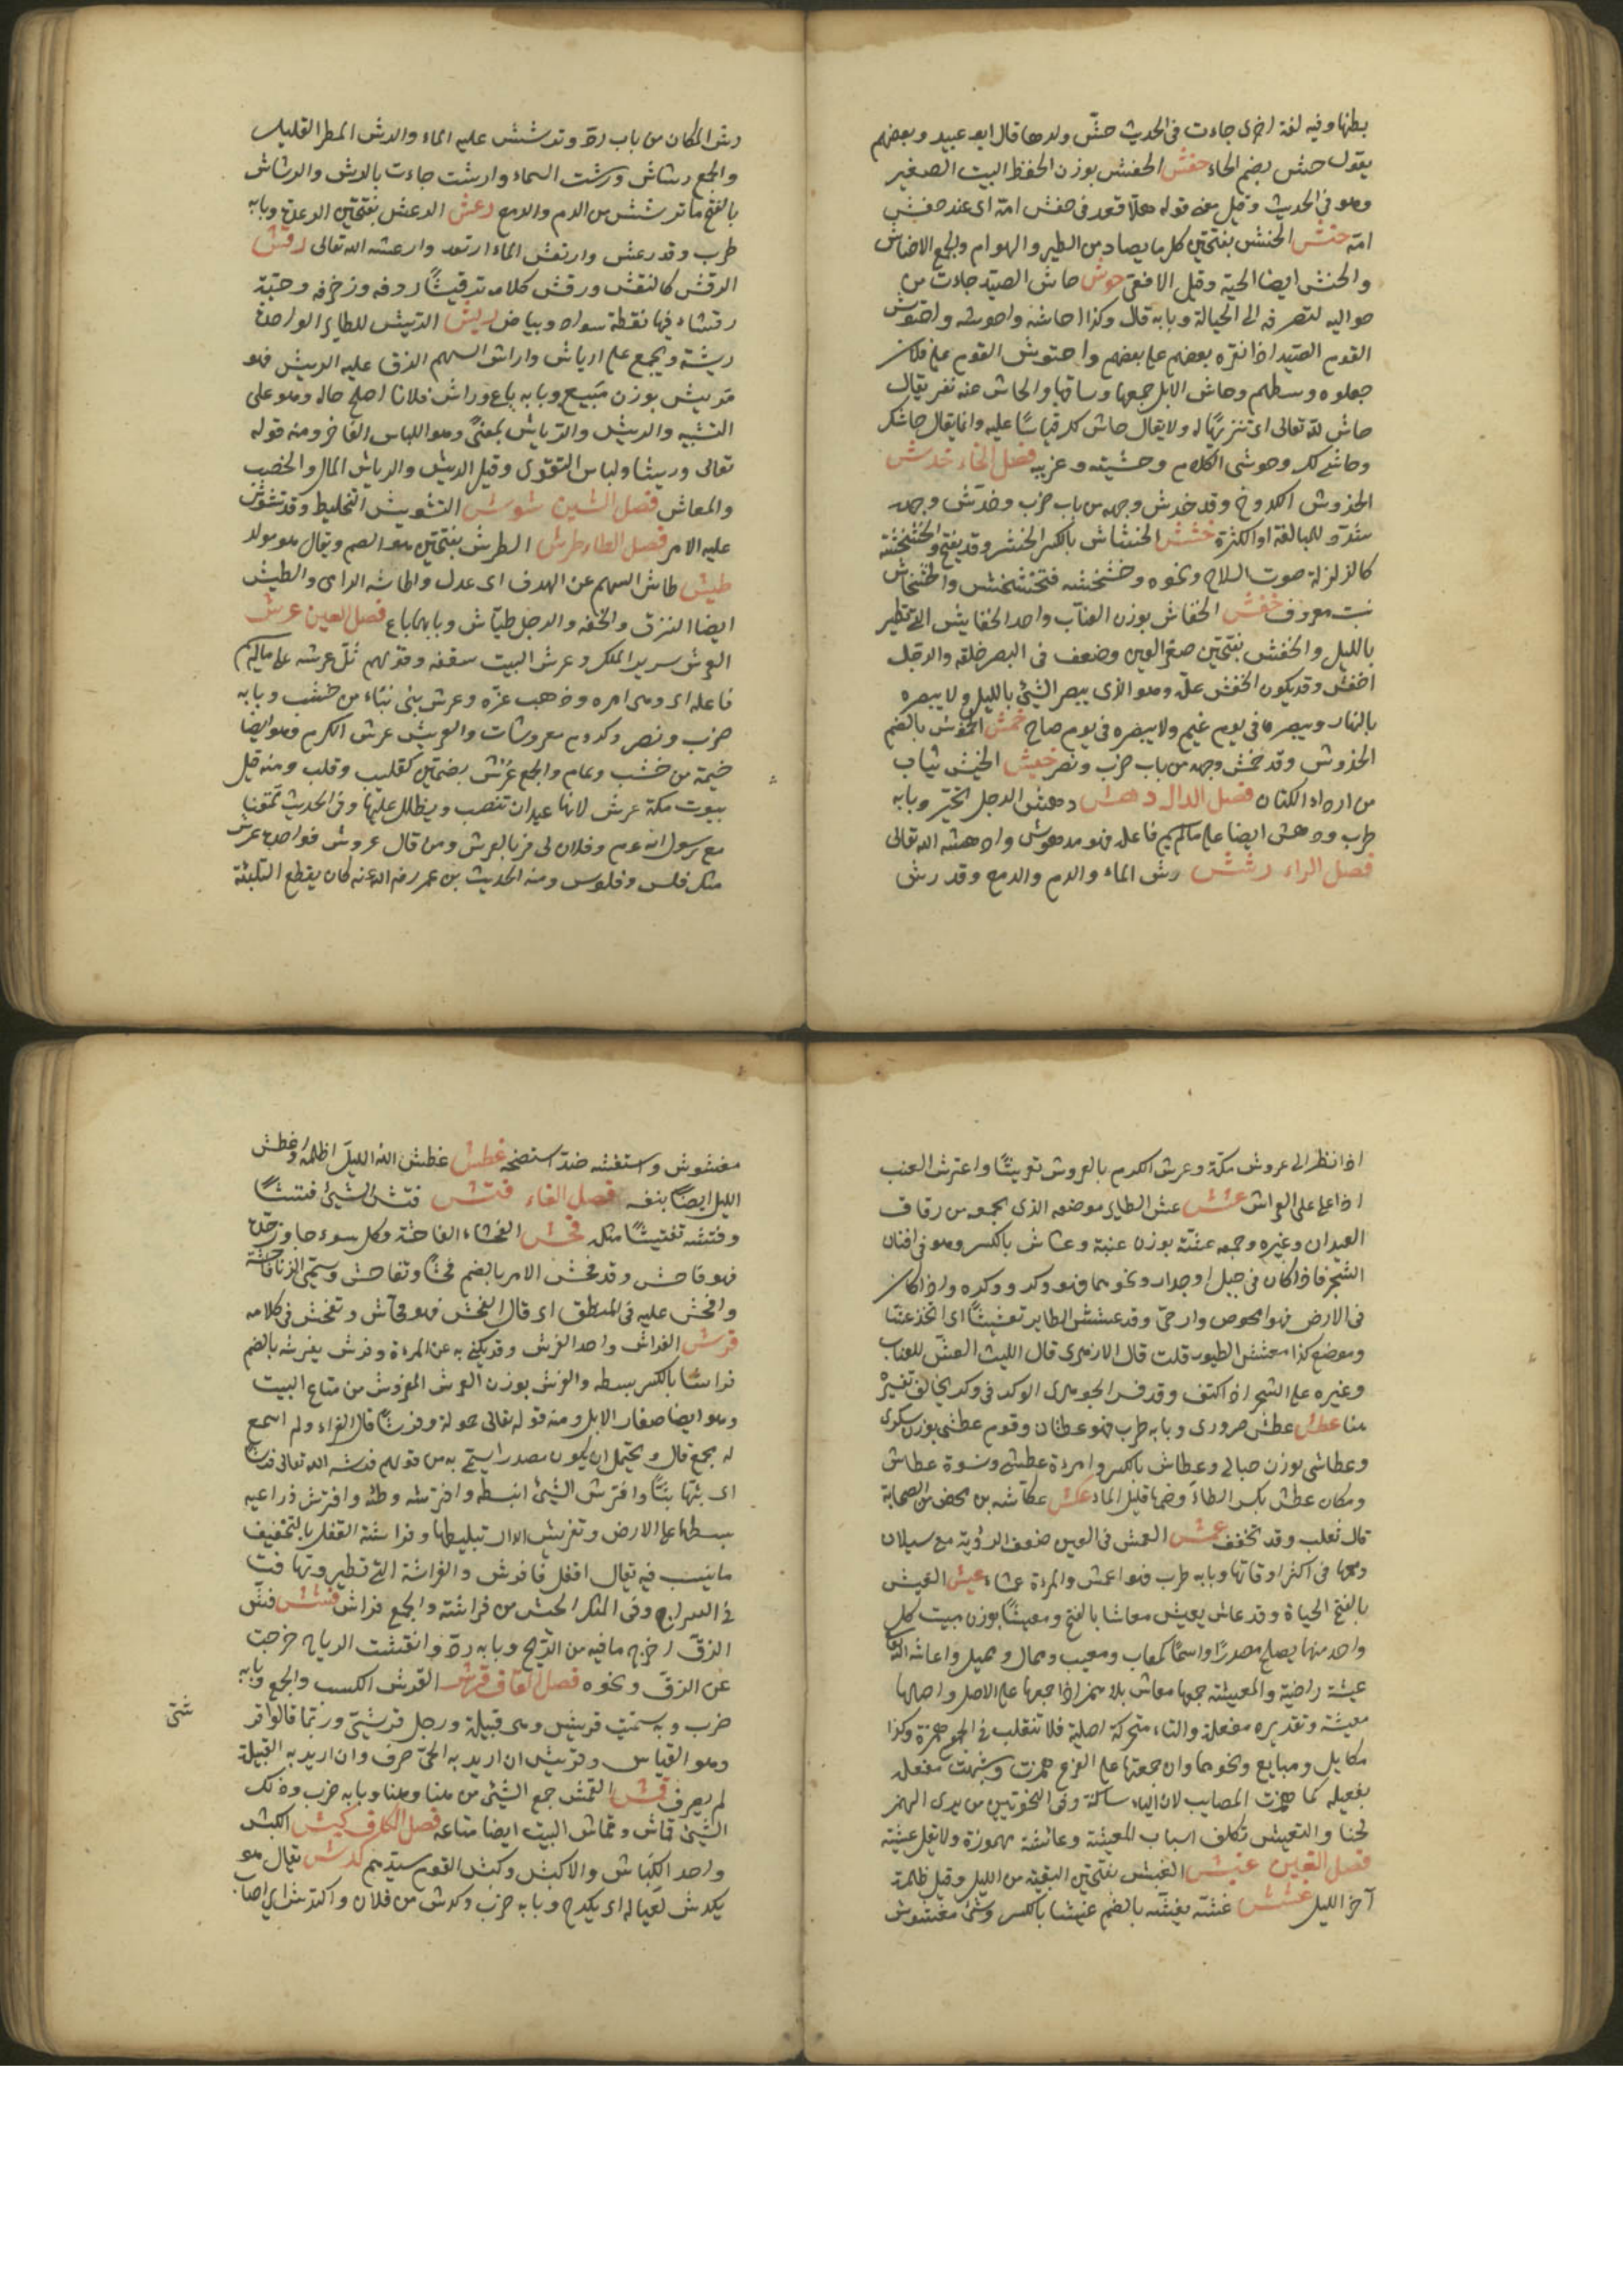 بطنها وفيه لغة اخرى جاءت فى الحديث حشّ ولدها قال ابو عبيد وبعضهم
يقول حش بضم الحاء حفش الحفش بوزن الحفظ البيت الصغير
وهو فى الحديث وقيل معنى قوله هلّا قعد فى حفش امّه اى عند حفش
امّه حنش الحنش بفتحتين كل ما يصاد من الطير والهوام والجمع الاحناش
والحنش ايضا الحية وقيل الافعى حوش حاش الصيد جاءه من
حواليه ليصرفه الى الحبالة وبابه قال وكذا احاشه واحوشه واحتوش
القوم الصيد اذا نفره بعضهم على بعضهم واحتوش القوم على فلان
جعلوه وسطهم وحاش الابل جمعها وساقها وانحاش عنه نفر يقال
حاش لله تعالى اى تنزيها له ولا يقال حاش لك قياسًا عليه وانما يقال حاشاك
وحاشى لك وحوشى الكلام وحشيته وغريبه فصل الخاء خدش
الخدوش الكدوح وقد خدش وجهه من باب ضرب وخدّش وجهه
شدّد للمبالغة او الكثرة خشش الخشاش بالكسر الحشر وقد يفتح والخشخشة
كالزلزلة صوت السلاح ونحوه وخشخشه فتخشخش والخشخاش
نبت معروف خفش الخفاش بوزن العنّاب واحد الخفافيش التى تطير
بالليل والخفش بفتحتين صغر العين وضعف فى البصر خلقة والرجل
اخفش وقد يكون الخفش علّة وهو الذى يبصر الشئ بالليل ولا يبصره
بالنهار ويبصره فى يوم غيم ولا يبصره فى يوم صاح خمش الخموش بالضم
الخدوش وقد خمش وجهه من باب ضرب ونصر خيش الخيش ثياب
من اردإ الكتان فصل الدال دهش دهش الرجل تحيّر وبابه
طرب ودهش ايضا على ما لم يسم فاعله فهو مدهوش وادهشه الله تعالى
فصل الراء رشش رش الماء والدم والدمع وقد رش
رش المكان من باب ردّ وترشش عليه الماء والرش المطر القليل
والجمع رشاش ورشت السماء وارشت جاءت بالرش والرشاش
بالفتح ما ترشش من الدم والدمع رعش الرعش بفتحتين الرعدة وبابه
طرب وقد رعش وارتعش الماء ارتعد وارعشه الله تعالى رقش
الرقش كالنقش ورقش كلامه ترقيشًا زوقه وزخرفه وحيّة
رقشاء فيها نقطة سواد وبياض ريش الريش للطاير الواحدة
ريشة ويجمع على ارياش وراش السهم الزق عليه الريش فهو
مريش بوزن مبيع وبابه باع وراش فلانا اصلح حاله وهو على
التشبيه والريش والرياش بمعنىً وهو اللباس الفاخر ومنه قوله
تعالى وريشا ولباس التقوى وقيل الريش والرياش المال والخصب
والمعاش فصل الشين شوش التشويش التخليط وقد تشوش
عليه الامر فصل الطاء طرش الطرش بفتحتين هو الصم ويقال هو مولد
طيش طاش السهم عن الهدف اى عدل واطاشه الرامى والطيش
ايضا النزق والخفة والرجل طيّاش وبابهما باع فصل العين عرش
العرش سرير الملك وعرش البيت سقفه وقولهم ثلّ عرشه على ما لم يسم
فاعله اى وهى امره وذهب عزّه وعرش بنى بناء من خشب وبابه
ضرب ونصر وكروم معروشات والعريش عرش الكرم وهو ايضا
خيمة من خشب وثمام والجمع عرش بضمتين كقليب وقلب ومنه قيل
بيوت مكة عرش لانها عيدان تنصب ويظلل عليها وفى الحديث تمتعنا
مع رسول الله عم وفلان كافر بالعرش ومن قال عروش فواحدها عرش
مثل فلس وفلوس ومنه الحديث بن عمر رضى الله عنه كان يقطع التلبية
اذا نظر الى عروش مكّة وعرش الكرم بالعروش تعريشًا واعترش العنب
اذا علا على العراش عشش عش الطاير موضعه الذى يجمعه من دقاق
العيدان وغيره وجمعه عششة بوزن عنبة وعشاش بالكسر وهو فى افنان
الشجر فاذا كان فى جبل او جدار ونحوهما فهو وكر ووكن واذا كان
فى الارض فهو افحوص وادحى وقد عشش الطاير تعشيشًا اى اتخذ عشّا
وموضع كذا معشش الطيور قلت قال الازهرى قال الليث العش للغراب
وغيره على الشجر اذا كثف وقد فسر الجوهرى الوكر فى وكر بخالف تفسيره
هنا عطش عطش ضد روى وبابه طرب فهو عطشان وقوم عطشى بوزن سكرى
وعطاشى بوزن حبالى وعطاش بالكسر وامرءة عطشى ونسوة عطاش
ومكان عطش بكسر الطاء وضمها قليل الماء عكش عكّاشه بن محصن من الصحابة
قال ثعلب وقد تخفف عمش العمش فى العين ضعف الرؤية مع سيلان
دمعها فى اكثر اوقاتها وبابه طرب فهو اعمش والمرءة عمشاء عيش العيش
بالفتح الحياة وقد عاش يعيش معاشا بالفتح ومعيشًا بوزن مبيت كل
واحد منهما يصلح مصدرًا واسمًا كمعاب ومعيب وممال ومميل واعاشه الله
عيشة راضية والمعيشة جمعها معايش بلا همز اذا جمعها على الاصل واصلها
معيشة وتقديره مفعلة والياء متحركة اصلية فلا تنقلب فى الجمع همزة وكذا
مكايل ومبايع ونحوهما وان جمعتها على الفرع همزت وشبهت مفعلة
بفعيلة كما همزت المصايب لان الياء ساكنة وفى النحويين من يرى الهمز
لحنا والتعيش تكلف اسباب المعيشة وعائشة مهموزة ولا تقل عيشة
فصل الغين غبش الغبش بفتحتين البقية من الليل وقيل ظلمة
آخر الليل غشش غشّه يغشّه بالضم غشا بالكسر وشئ مغشوش
مغشوش واستغشه ضدّ استنصحه غطش غطش الله الليل اظلمه واغطش
الليل ايضًا بنفسه فصل الفاء فتش فتش الشئ فتشًا
وفتشه تفتيشًا مثله فحش الفحشاء الفاحشة وكل سوء جاوز حدّه
فهو فاحش وقد فحش الامر بالضم فحشًا وتفاحش ويسمى الزنا فاحشة
وافحش عليه فى المنطق اى قال الفحش فهو فحّاش وتفحش فى كلامه
فرش الفراش واحد الفرش وقد يكنى به عن المرءة وفرش يفرشه بالضم
فراشا بالكسر بسطه والفرش بوزن العرش المفروش من متاع البيت
وهو ايضا صغار الابل ومنه قوله تعالى حمولة وفرشًا قال الفراء ولم اسمع
له بجمع قال ويحتمل ان يكون مصدرا يسمّى به من قولهم فرشه الله تعالى فرشًا
اى بثها بثًّا وافترش الشئ انبسط وافترشه وطئه وافترش ذراعيه
بسطهما على الارض وتفريش الدار تبليطها وفراشة القفل بالتخفيف
ما ينشب فيه يقال اقفل فافرش والفراشة التى تطير وتهافت
فى السراج وفى المثل اطيش من فراشة والجمع فراش فشش فشّ
الزقّ اخرج ما فيه من الريح وبابه ردّ وانفشت الرياح خرجت
عن الزقّ ونحوه فصل القاف قرش القرش الكسب والجمع وبابه
ضرب وبه سمّيت قريش وهى قبيلة ورجل قرشىّ وربّما قالوا قر
شىّ
وهو القياس وقريش ان اريد به الحىّ صرف وان اريد به القبيلة
لم يصرف قمش القمش جمع الشئ من هنا وهنا وبابه ضرب وذلك
الشئ قماش وقماش البيت ايضا متاعه فصل الكاف كبش الكبش
واحد الكباش والاكبش وكبش القوم سيّدهم كدش يقال هو
يكدش لعياله اى يكدح وبابه ضرب وكدش من فلان واكتدش اى اصاب